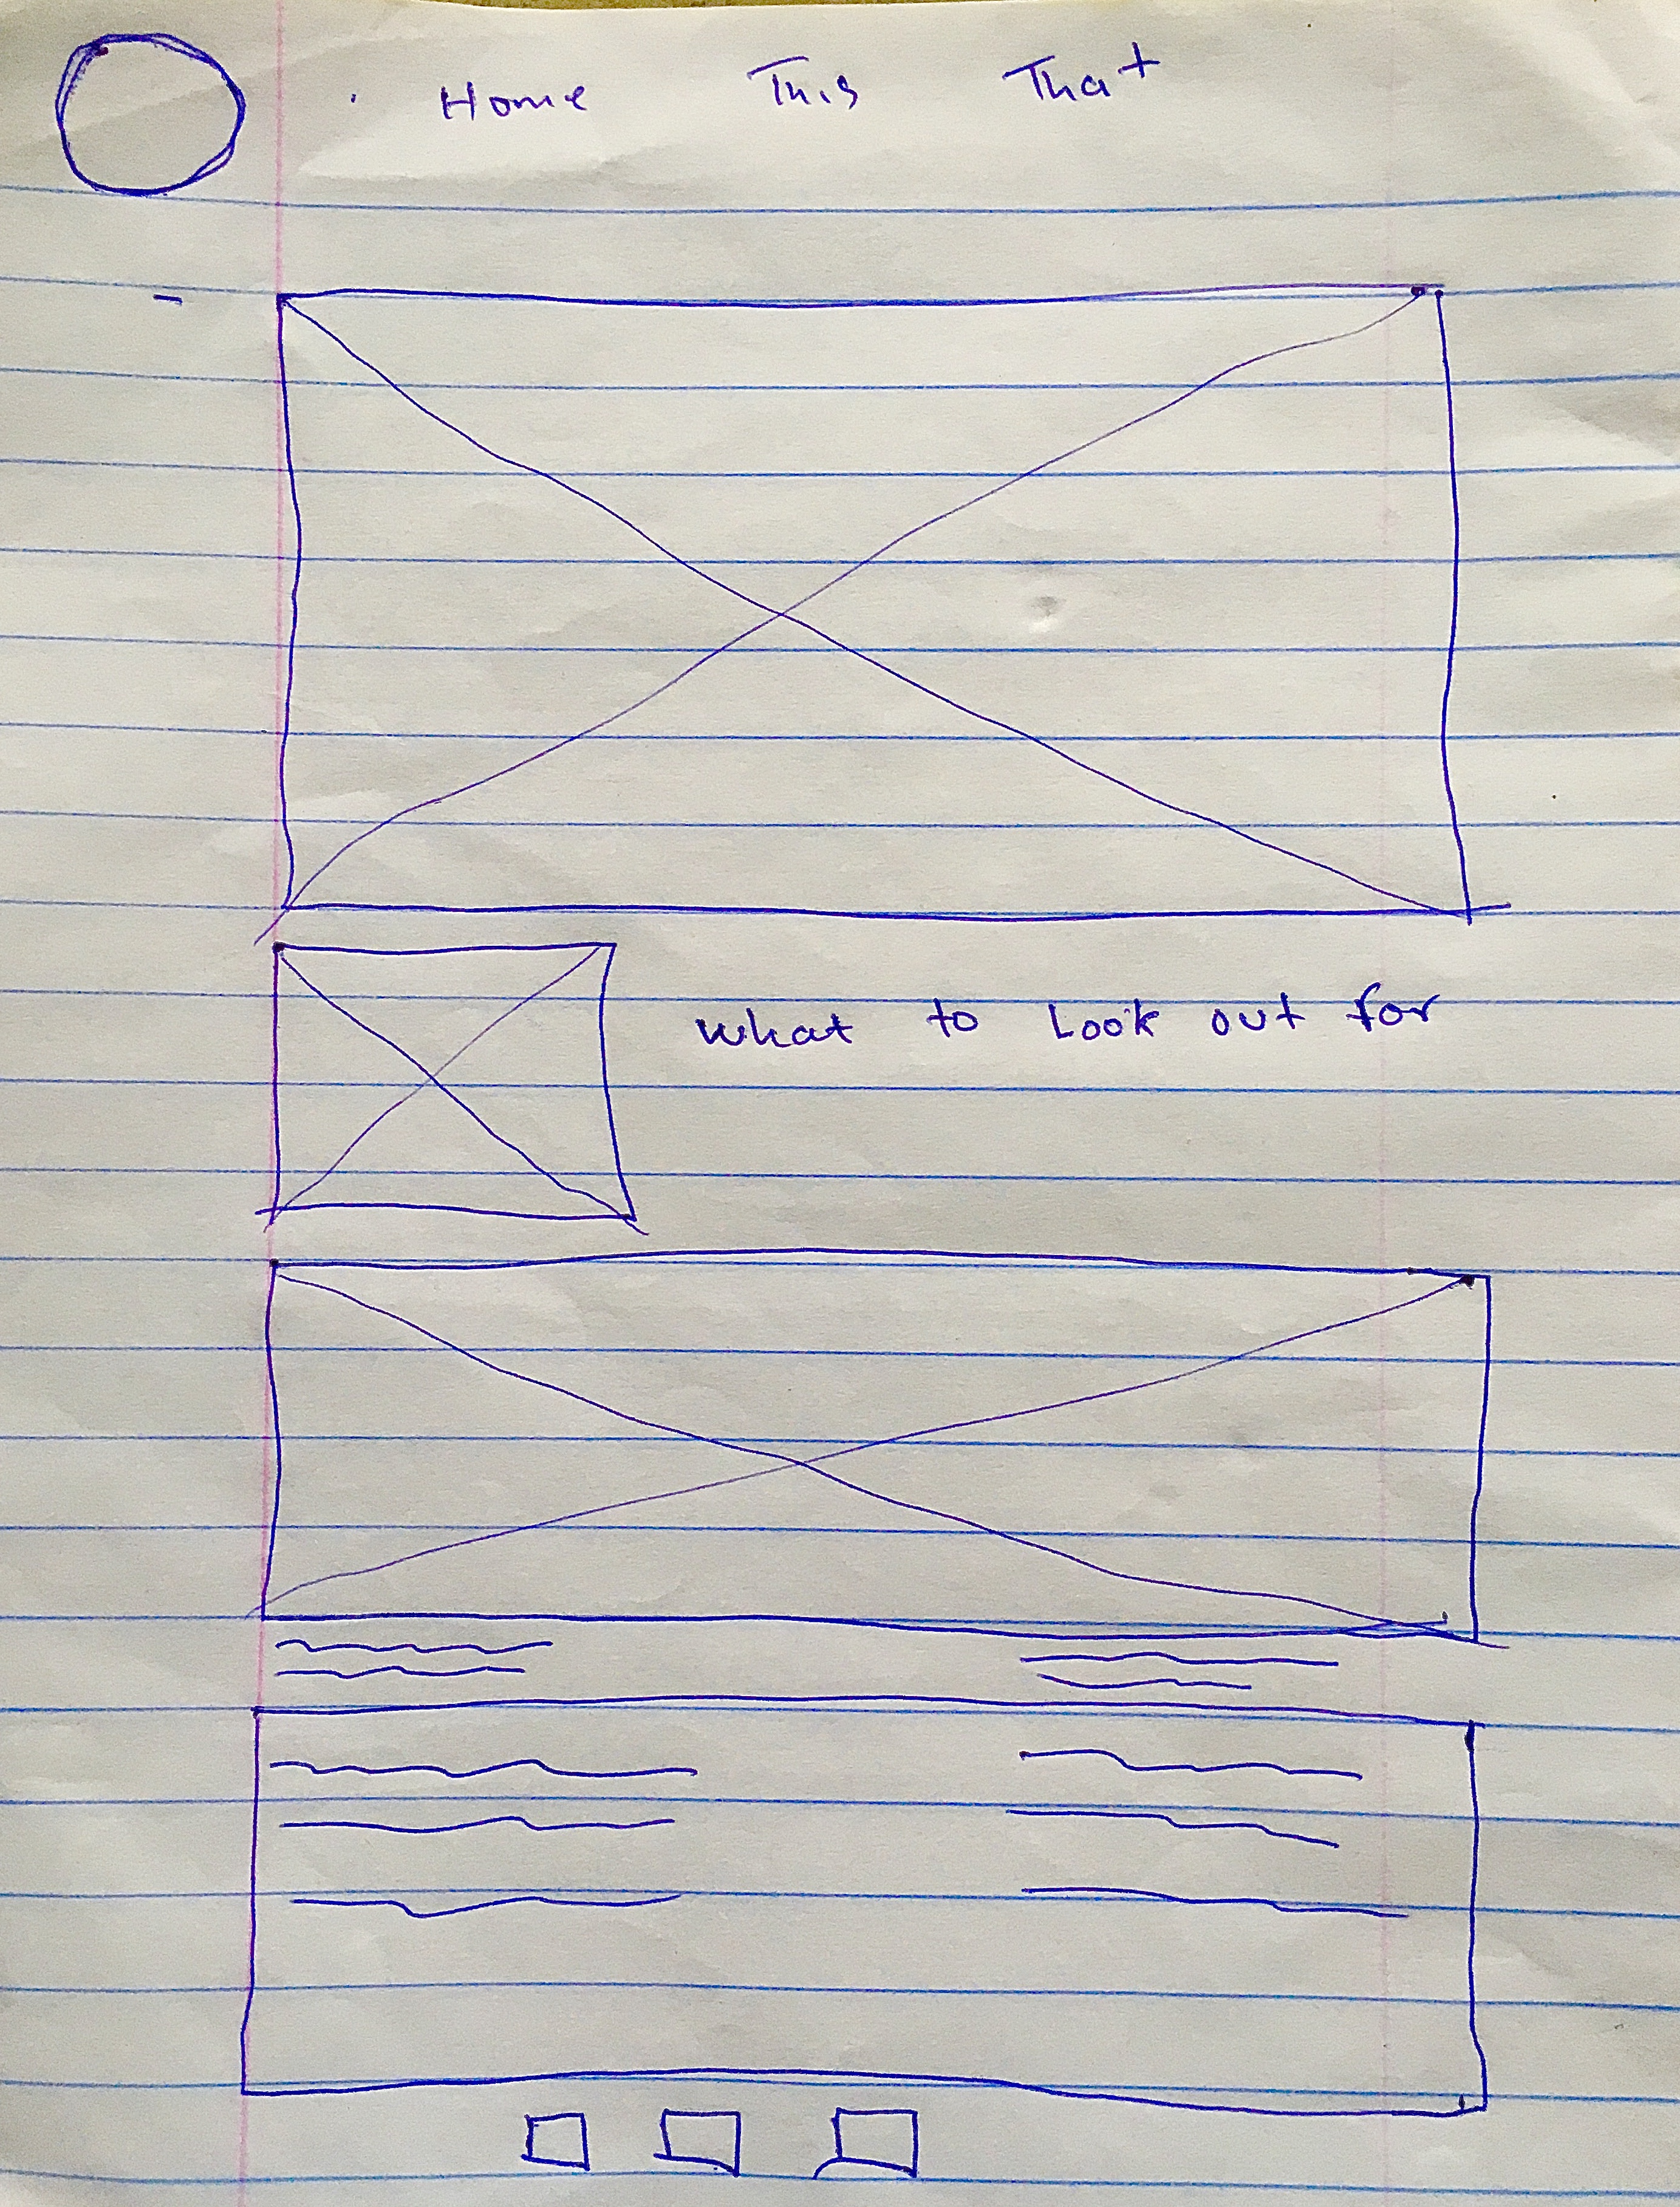 Home This That
What to Look out for